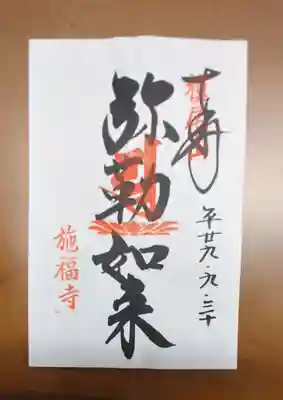 奉拝
平廿九.九.三十
弥勒如来
施福寺